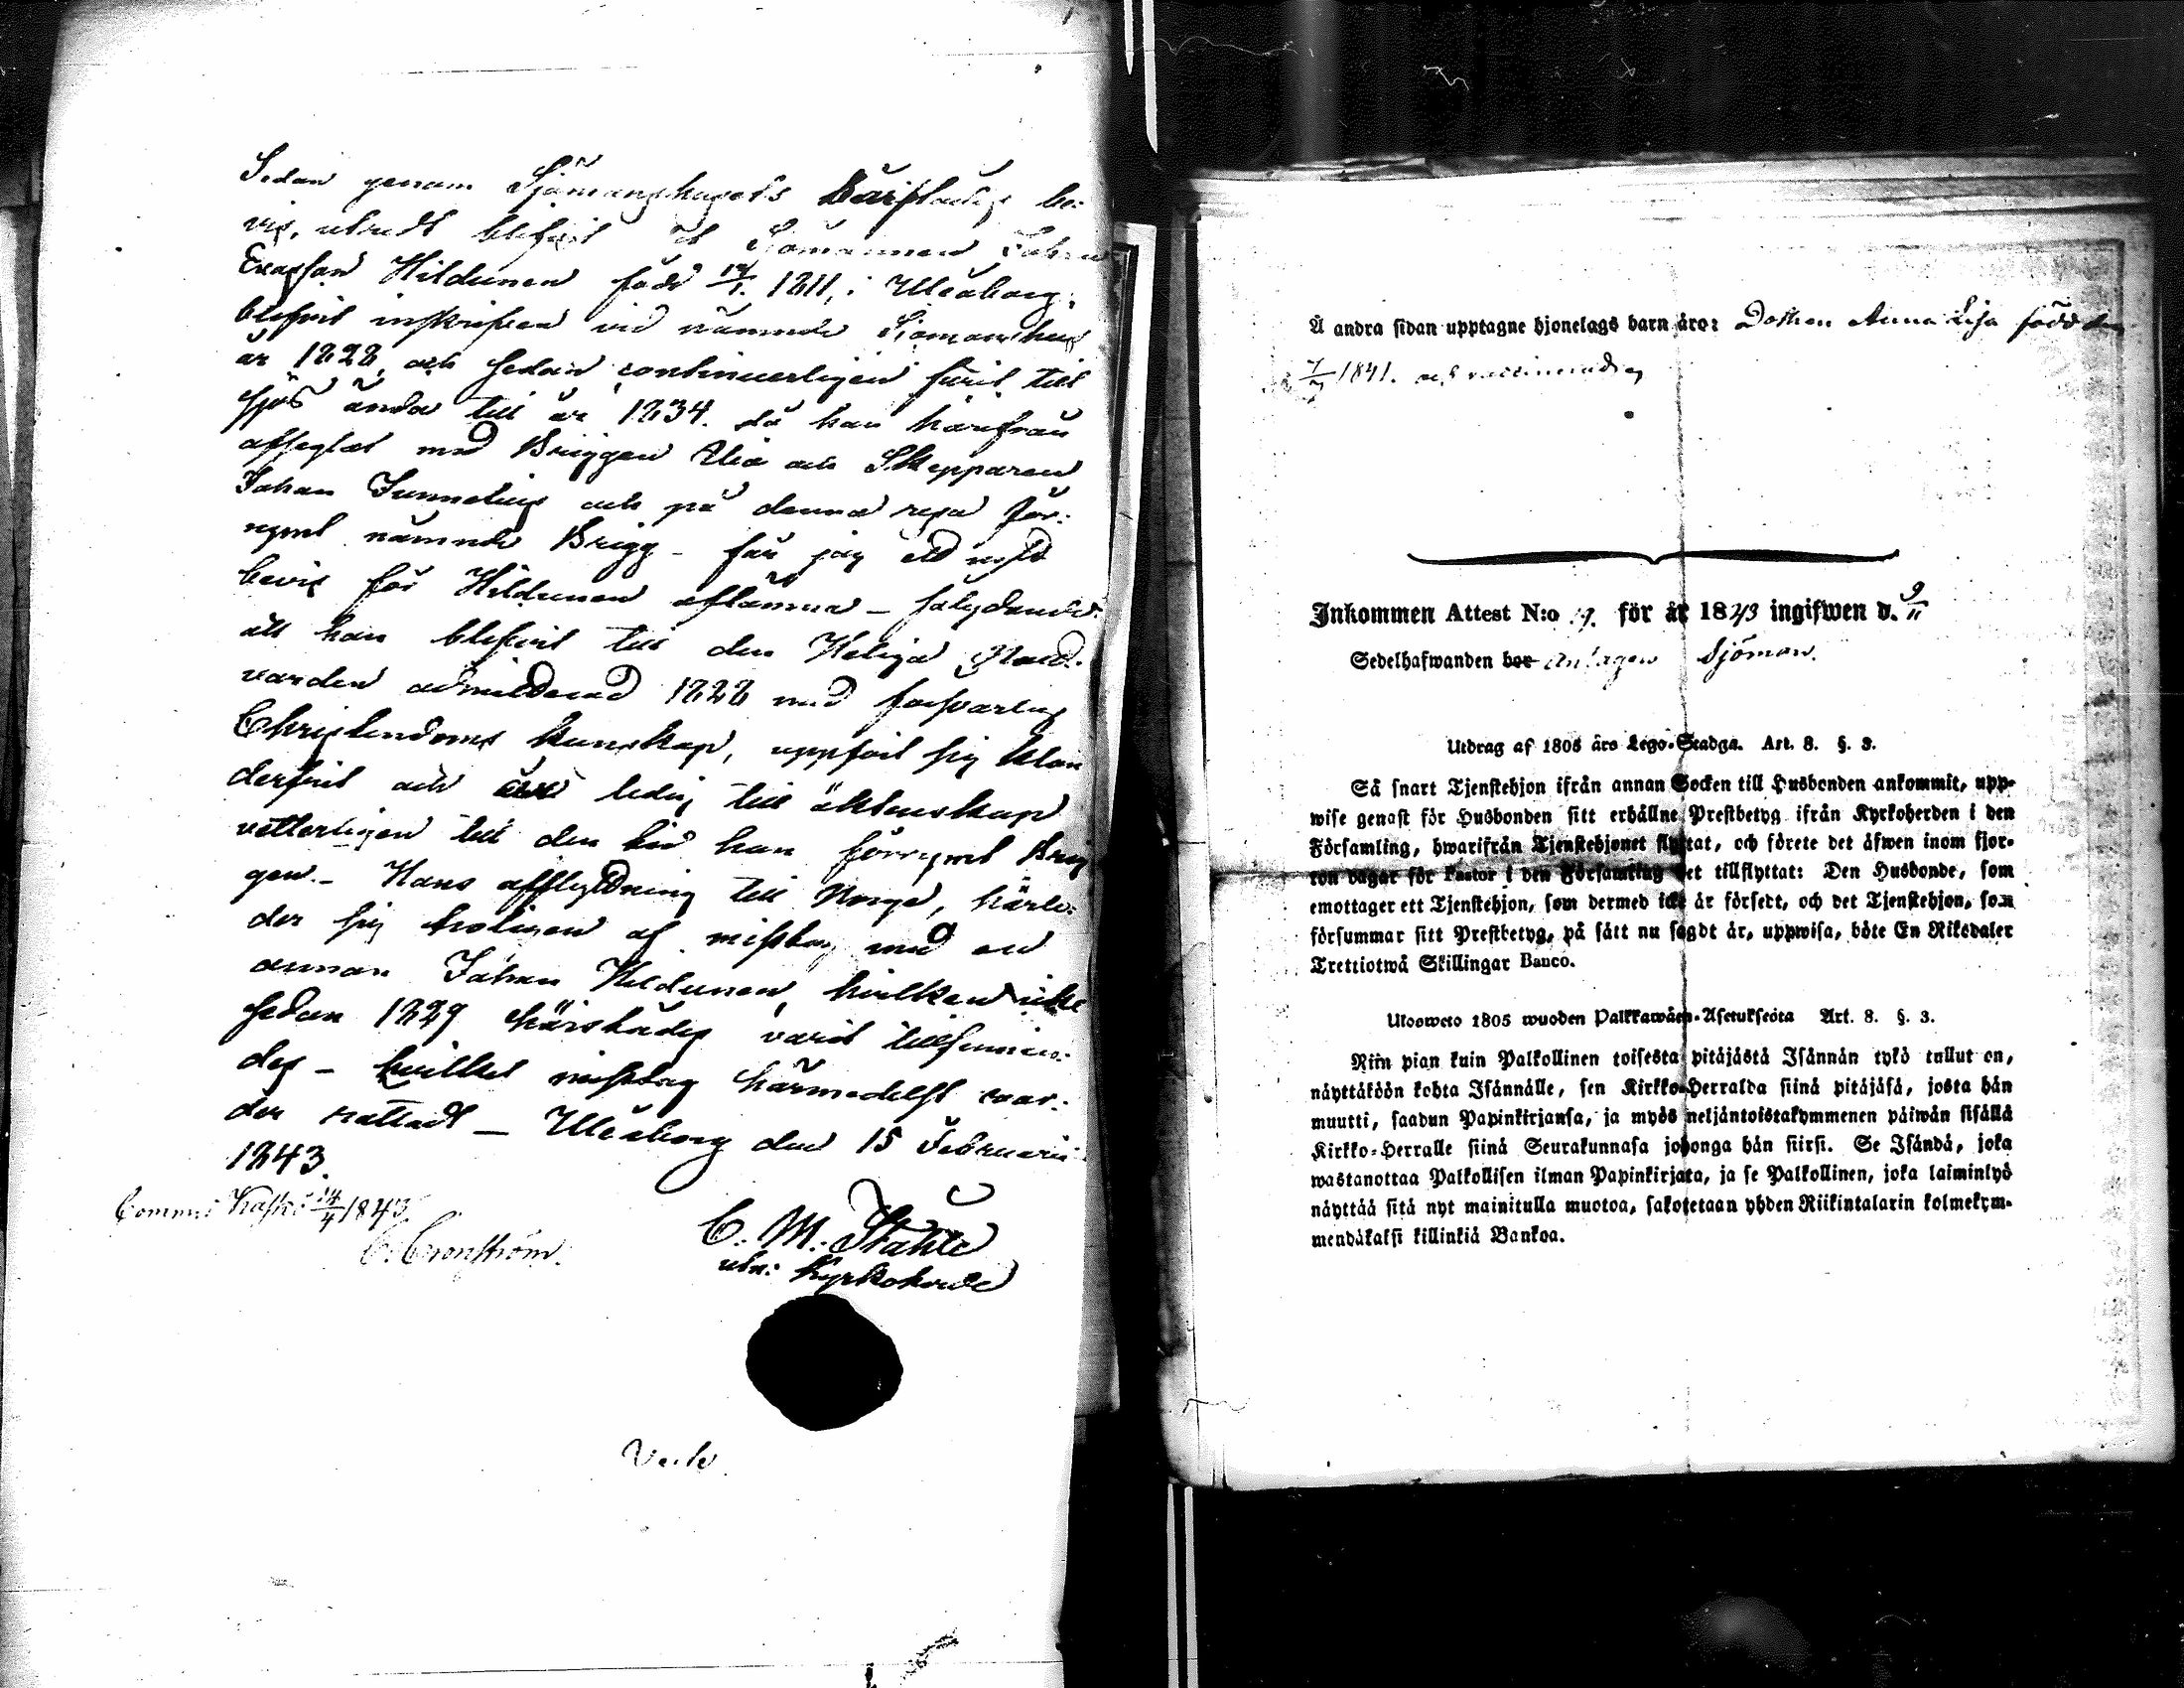 Sedan genom Sjömanshusets härstädes be-
vis, utredt blifvit att Sjömannen Johan
Erasson Hildunen född 1811, i Uleåborg,
blifvit inskrifven vid nämnde Sjömanshus
år 1828, och sedan continuerligen farit till
sjös ända till år 1834. då han härifrån
afseglat med Briggen Uleå och Skepparen
Johan Junnelius och på denna resa för:
rymt nämnde Brigg - får jag ett nytt
bevis för Hildunen aflämna - sålydande:
att han blifvit till den Heliga Natt-
varden admitterad 1828 med försvarlig
Christendoms kunskap, uppfört sig klan
derfritt och är ledig till äktenskap
vetterligen till den tid han förrymt Brig
gen. - Hans afflyttning till Norge, härle:
der sig troligen af misstag med en
annan Johan Hildunen, hvilken icke
sedan 1829 härstädes varit tillfinnan:
des - hvilket misstag härmedelst var:
der rättadt - Uleåborg den 15 Februarii
1843.
C. M. Ståhle
Kyrkoherde
Kaskö 14/4 1843
C. Cronström.
Å andra sidan upptagne hjonelags barn äro: Dottren Anna Lisa född den
1841. och vaccinerad
Inkommen Attest N:o 19. för år 1843 ingifwen d. 9/11
Sedelhafwanden bor Antagen Sjöman.
Utdrag af 1805 års Lego-Stadga. Art. 8. §. 3.
Så snart Tjenstehjon ifrån annan Socken till Husbonden ankommit, upp-
wise genast för Husbonden sitt erhållne Prestbetyg ifrån Kyrkoherden i den
Församling, hwarifrån Tjenstehjonet flyttat, och förete det äfwen inom fjor-
ton dagar för Pastor i den Församling det tillflyttat: Den Husbonde, som
emottager ett Tjenstehjon, som dermed icke är försedt, och det Tjenstehjon, som
försummar sitt Prestbetyg, på sätt nu sagdt är, uppwisa, böte En Riksdaler
Trettiotwå Skillingar Banco.
Ulosweto 1805 wuoden Palkkawäen-Asetuksesta Art. 8. §. 3.
Niin pian kuin Palkollinen toisesta pitäjästä Isännän tykö tullut on,
näyttäköön kohta Isännälle, sen Kirkko-Herralda siinä pitäjäsä, josta hän
muutti, saadun Papinkirjansa, ja myös neljäntoistakymmenen päiwän sisällä
Kirkko-Herralle siinä Seurakunnasa johonga hän siirsi. Se Isändä, joka
wastanottaa Palkollisen ilman Papinkirjata, ja se Palkollinen, joka laiminlyö
näyttää sitä nyt mainitulla muotoa, sakotetaan yhden Riikintalarin kolmekym-
mendäkaksi killinkiä Bankoa.